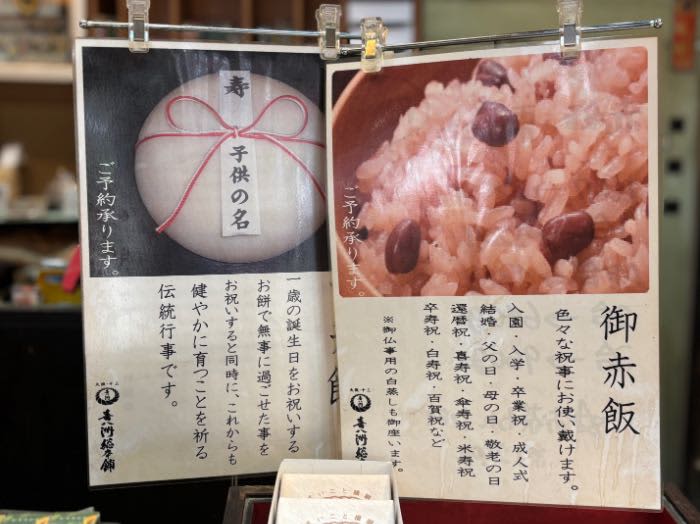 御赤飯
色々な祝事にお使い戴けます。
入園・入学・卒業祝・成人式
結婚・父の日・母の日・敬老の日
還暦祝・喜寿祝・傘寿祝・米寿祝
卒寿祝・白寿祝・百賀祝など
※御仏事用の白蒸しも御座います。
ご予約承ります。
大阪・十三
喜八洲総本舗
寿
子供の名
ご予約承ります。
一歳の誕生日をお祝いする
お餅で無事に過ごせた事を
お祝いすると同時に、これからも
健やかに育つことを祈る
伝統行事です。
大阪・十三
喜八洲総本舗